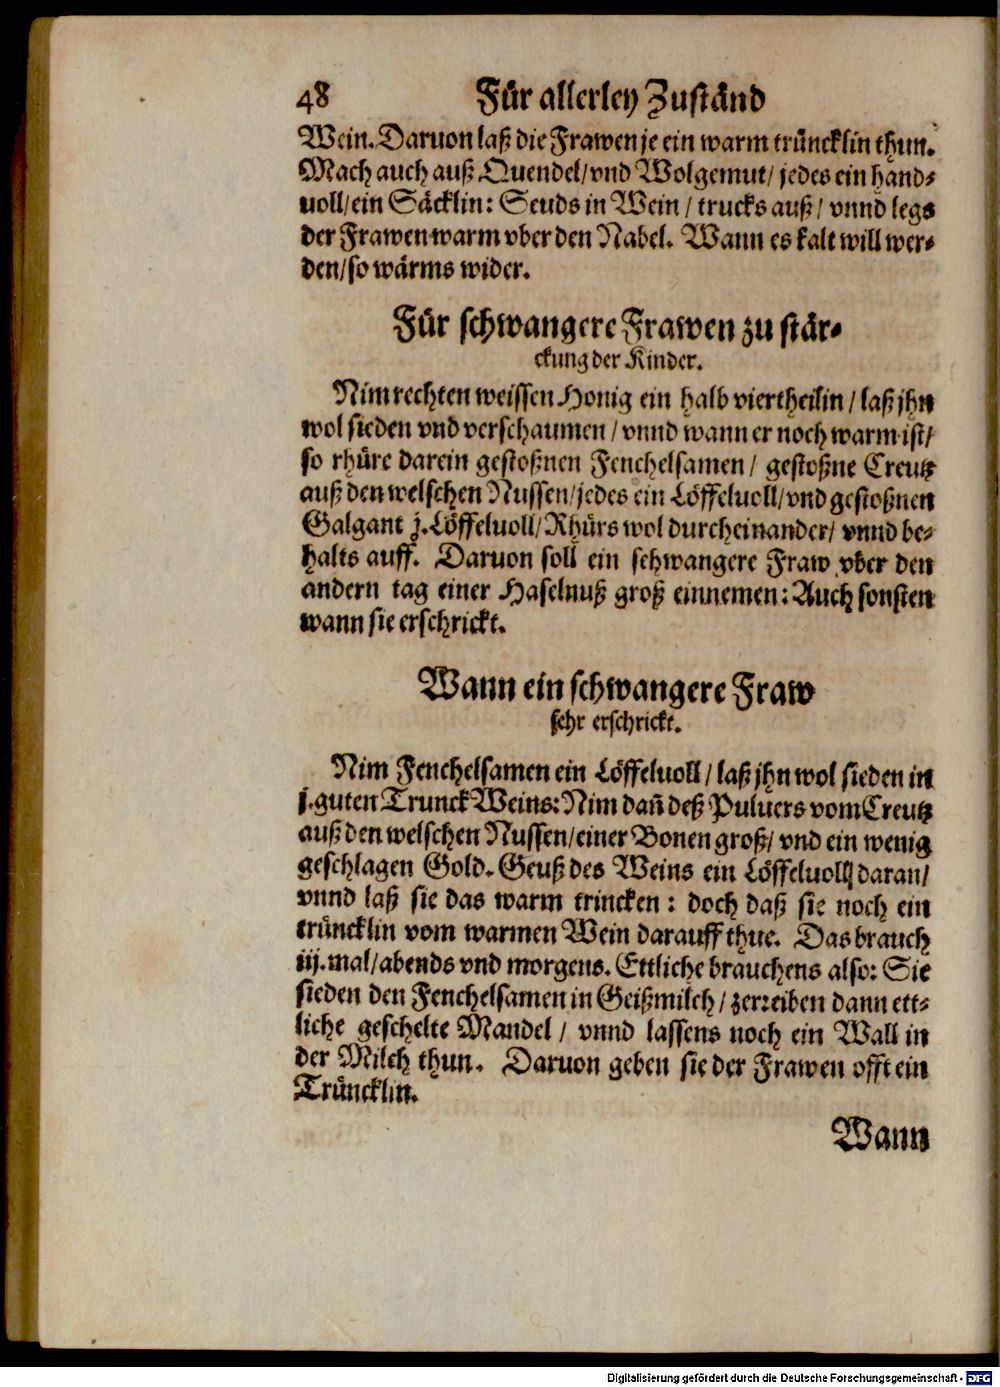 48 Für allerley Zuständ
Wein. Daruon laß die Frawen je ein warm trüncklin thun.
Mach auch auß Quendel/ vnd Wolgemut/ jedes ein hand-
uoll/ ein Säcklin: Seuds in Wein / trucks auß/ vnnd legs
der Frawen warm vber den Nabel. Wann es kalt will wer-
den/ so wärms wider.
Für schwangere Frawen zu stär-
ckung der Kinder.
Nim rechten weissen Honig ein halb viertheilin / laß jhn
wol sieden vnd verschaumen / vnnd wann er noch warm ist/
so rhüre darein gestoßnen Fenchelsamen / gestoßne Creutz
auß den welschen Nussen/ jedes ein Löffeluoll/ vnd gestoßnen
Galgant j. Löffeluoll/ Rhürs wol durcheinander/ vnnd be-
halts auff. Daruon soll ein schwangere Fraw vber den
andern tag einer Haselnuß groß einnemen: Auch sonsten
wann sie erschrickt.
Wann ein schwangere Fraw
sehr erschrickt.
Nim Fenchelsamen ein Löffeluoll / laß jhn wol sieden in
j. guten Trunck Weins: Nim dañ deß Puluers vom Creutz
auß den welschen Nussen/ einer Bonen groß/ vnd ein wenig
geschlagen Gold. Geuß des Weins ein Löffeluoll daran/
vnnd laß sie das warm trincken : doch daß sie noch ein
trüncklin vom warmen Wein darauff thue. Das brauch
iij. mal/ abends vnd morgens. Ettliche brauchens also: Sie
sieden den Fenchelsamen in Geißmilch / zerreiben dann ett-
liche geschelte Mandel / vnnd lassens noch ein Wall in
der Milch thun. Daruon geben sie der Frawen offt ein
Trüncklin.
Wann
Digitalisierung gefördert durch die Deutsche Forschungsgemeinschaft - DFG